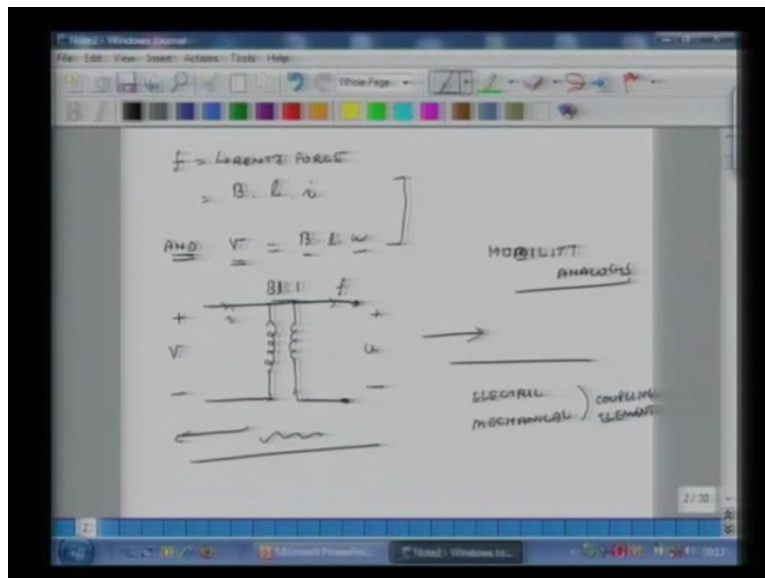 Note2 - Windows Journal
File Edit View Insert Actions Tools Help
Whole Page
B I
f = LORENTZ FORCE
= B. l. i
AND V = B. l. u
MOBILITY
ANALOGY
Bl:1 f
+ i +
V u
- -
ELECTRIC
MECHANICAL ) COUPLING
ELEMENT
2 / 30
2
Microsoft PowerPoin... Note2 - Windows Jo...